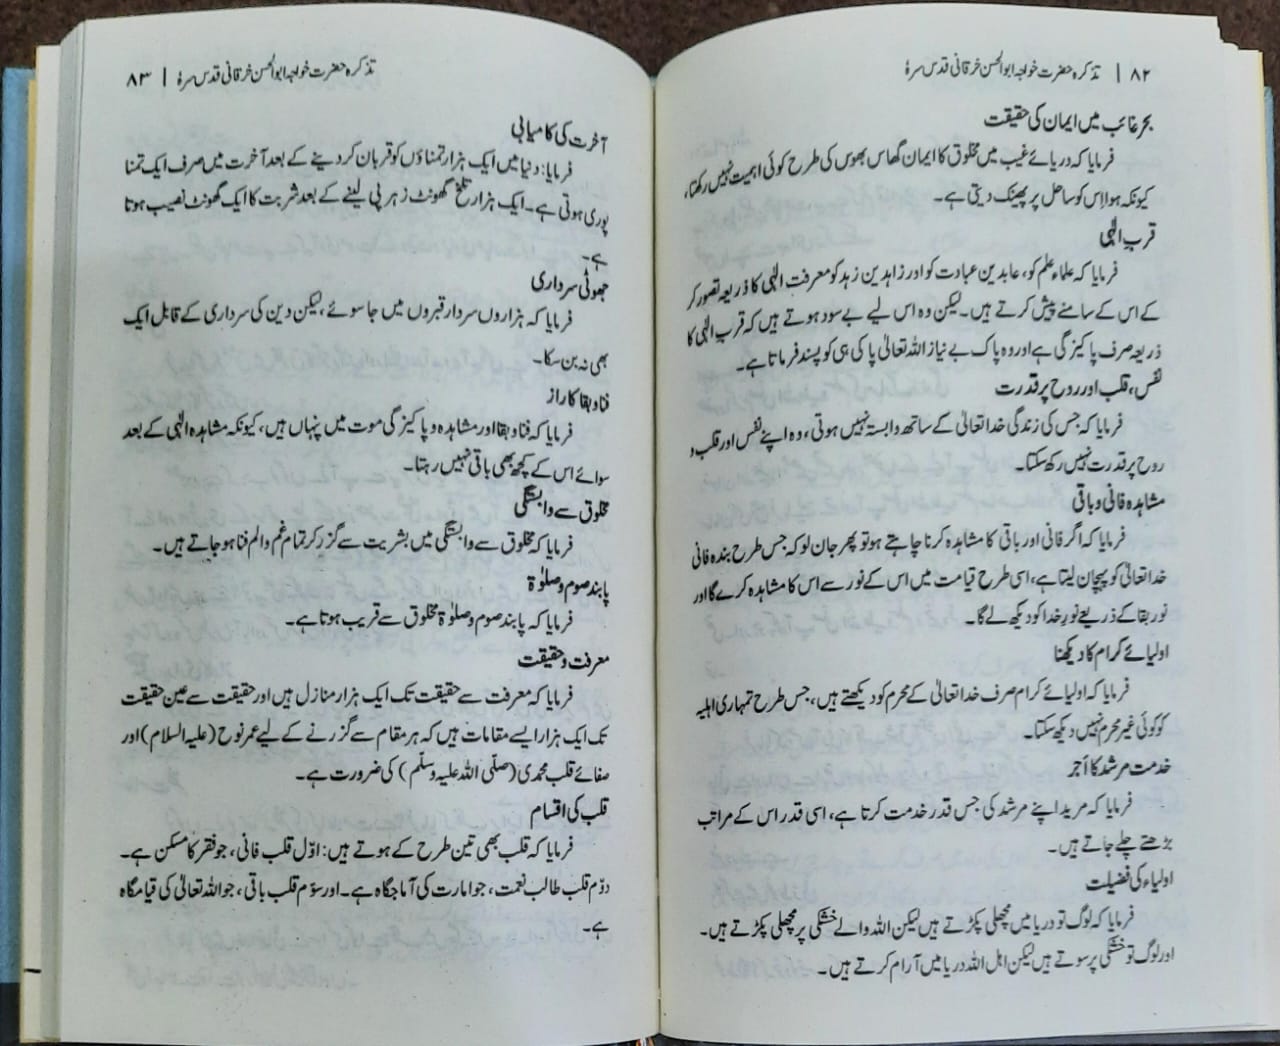 ۸۲ | تذکرہ حضرت خواجہ ابوالحسن خرقانی قدس سرہٗ
بحر غائب میں ایمان کی حقیقت
فرمایا کہ دریائے غیب میں مخلوق کا ایمان گھاس پھوس کی طرح کوئی اہمیت نہیں رکھتا،
کیونکہ ہوا اِس کو ساحل پر پھینک دیتی ہے۔
قربِ الٰہی
فرمایا کہ علماء علم کو، عابدین عبادت کو اور زاہدین زہد کو معرفت الٰہی کا ذریعہ تصور کر
کے اس کے سامنے پیش کرتے ہیں۔ لیکن وہ اس لیے بے سود ہوتے ہیں کہ قربِ الٰہی کا
ذریعہ صرف پاکیزگی ہے اور وہ پاک بے نیاز اللہ تعالیٰ پاکی ہی کو پسند فرماتا ہے۔
نفس، قلب اور روح پر قدرت
فرمایا کہ جس کی زندگی خدا تعالیٰ کے ساتھ وابستہ نہیں ہوتی، وہ اپنے نفس اور قلب و
روح پر قدرت نہیں رکھ سکتا۔
مشاہدہ فانی و باقی
فرمایا کہ اگر فانی اور باقی کا مشاہدہ کرنا چاہتے ہو تو پھر جان لو کہ جس طرح بندہ فانی
خدا تعالیٰ کو پہچان لیتا ہے، اسی طرح قیامت میں اس کے نور سے اس کا مشاہدہ کرے گا اور
نور بقا کے ذریعے نورِ خدا کو دیکھ لے گا۔
اولیائے کرام کا دیکھنا
فرمایا کہ اولیائے کرام صرف خدا تعالیٰ کے محرم کو دیکھتے ہیں، جس طرح تمہاری اہلیہ
کو کوئی غیر محرم نہیں دیکھ سکتا۔
خدمت مرشد کا اجر
فرمایا کہ مرید اپنے مرشد کی جس قدر خدمت کرتا ہے، اسی قدر اس کے مراتب
بڑھتے چلے جاتے ہیں۔
اولیاء کی فضیلت
فرمایا کہ لوگ تو دریا میں مچھلی پکڑتے ہیں لیکن اللہ والے خشکی پر مچھلی پکڑتے ہیں۔
اور لوگ تو خشکی پر سوتے ہیں لیکن اہل اللہ دریا میں آرام کرتے ہیں۔
تذکرہ حضرت خواجہ ابوالحسن خرقانی قدس سرہٗ | ۸۳
آخرت کی کامیابی
فرمایا: دنیا میں ایک ہزار تمناؤں کو قربان کر دینے کے بعد آخرت میں صرف ایک تمنا
پوری ہوتی ہے۔ ایک ہزار تلخ گھونٹ زہر پی لینے کے بعد شربت کا ایک گھونٹ نصیب ہوتا
ہے۔
جھوٹی سرداری
فرمایا کہ ہزاروں سردار قبروں میں جا سوئے، لیکن دین کی سرداری کے قابل ایک
بھی نہ بن سکا۔
فنا و بقا کا راز
فرمایا کہ فنا و بقا اور مشاہدہ و پاکیزگی موت میں پنہاں ہیں، کیونکہ مشاہدہ الٰہی کے بعد
سوائے اس کے کچھ بھی باقی نہیں رہتا۔
مخلوق سے وابستگی
فرمایا کہ مخلوق سے وابستگی میں بشریت سے گزر کر تمام غم و الم فنا ہو جاتے ہیں۔
پابند صوم و صلوٰۃ
فرمایا کہ پابند صوم و صلوٰۃ مخلوق سے قریب ہوتا ہے۔
معرفت و حقیقت
فرمایا کہ معرفت سے حقیقت تک ایک ہزار منازل ہیں اور حقیقت سے عین حقیقت
تک ایک ہزار ایسے مقامات ہیں کہ ہر مقام سے گزرنے کے لیے عمر نوح (علیہ السلام) اور
صفائے قلب محمدی (صلّی اللہ علیہ وسلّم) کی ضرورت ہے۔
قلب کی اقسام
فرمایا کہ قلب بھی تین طرح کے ہوتے ہیں: اوّل قلب فانی، جو فقر کا مسکن ہے۔
دوّم قلب طالب نعمت، جو امارت کی آماجگاہ ہے۔ اور سوّم قلب باقی، جو اللہ تعالیٰ کی قیام گاہ
ہے۔